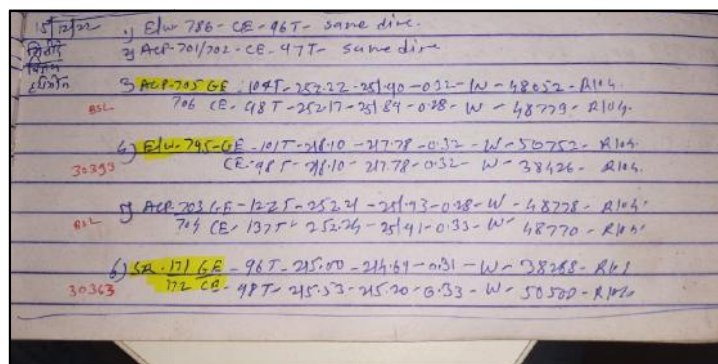 15/12/22 1) E/w 786 - CE - 96T - same dire.
2) ACP-701/702-CE-97T- same dire
3) ACP-705 GE - 104T-252.22-251.90-0.32-W-48052-R104.
BSL 706 CE-98T-252.17-251.89-0.28-W-48779-R104.
4) E/w-795-GE-101T-218.10-217.78-0.32-W-50752-R104.
30393 CE-98T-218.10-217.78-0.32-W-38426-R104.
5) ACP-703 GE-122T-252.21-251.93-0.28-W-48778-R104.
BSL 704 CE-137T-252.24-251.91-0.33-W-48770-R104.
6) 171 GE-96T-215.00-214.69-0.31-W-38268-
30363 172 CE-98T-215.53-215.20-0.33-W-50500-